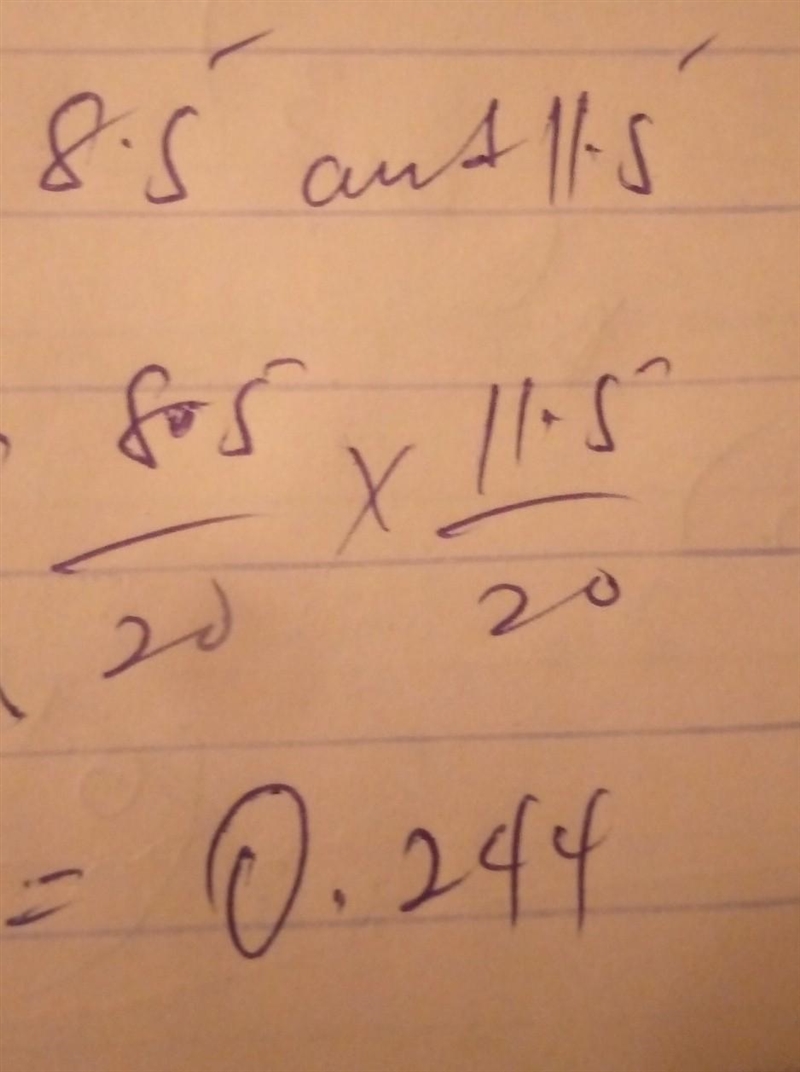 8.5 and 11.5
8.5/20 × 11.5/20
= 0.244